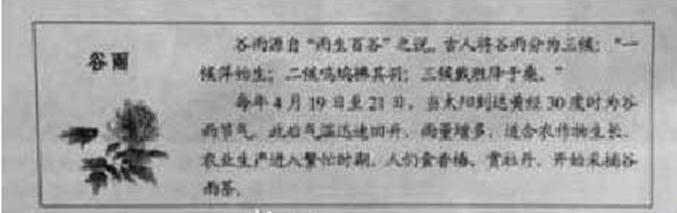 谷雨
谷雨源自“雨生百谷”之说。古人将谷雨分为三候：“一
候萍始生；二候鸣鸠拂其羽；三候戴胜降于桑。”
每年4月19日至21日，当太阳到达黄经30度时为谷
雨节气。此后气温迅速回升，雨量增多，适合农作物生长，
农业生产进入繁忙时期。人们食香椿、赏牡丹，开始采摘谷
雨茶。